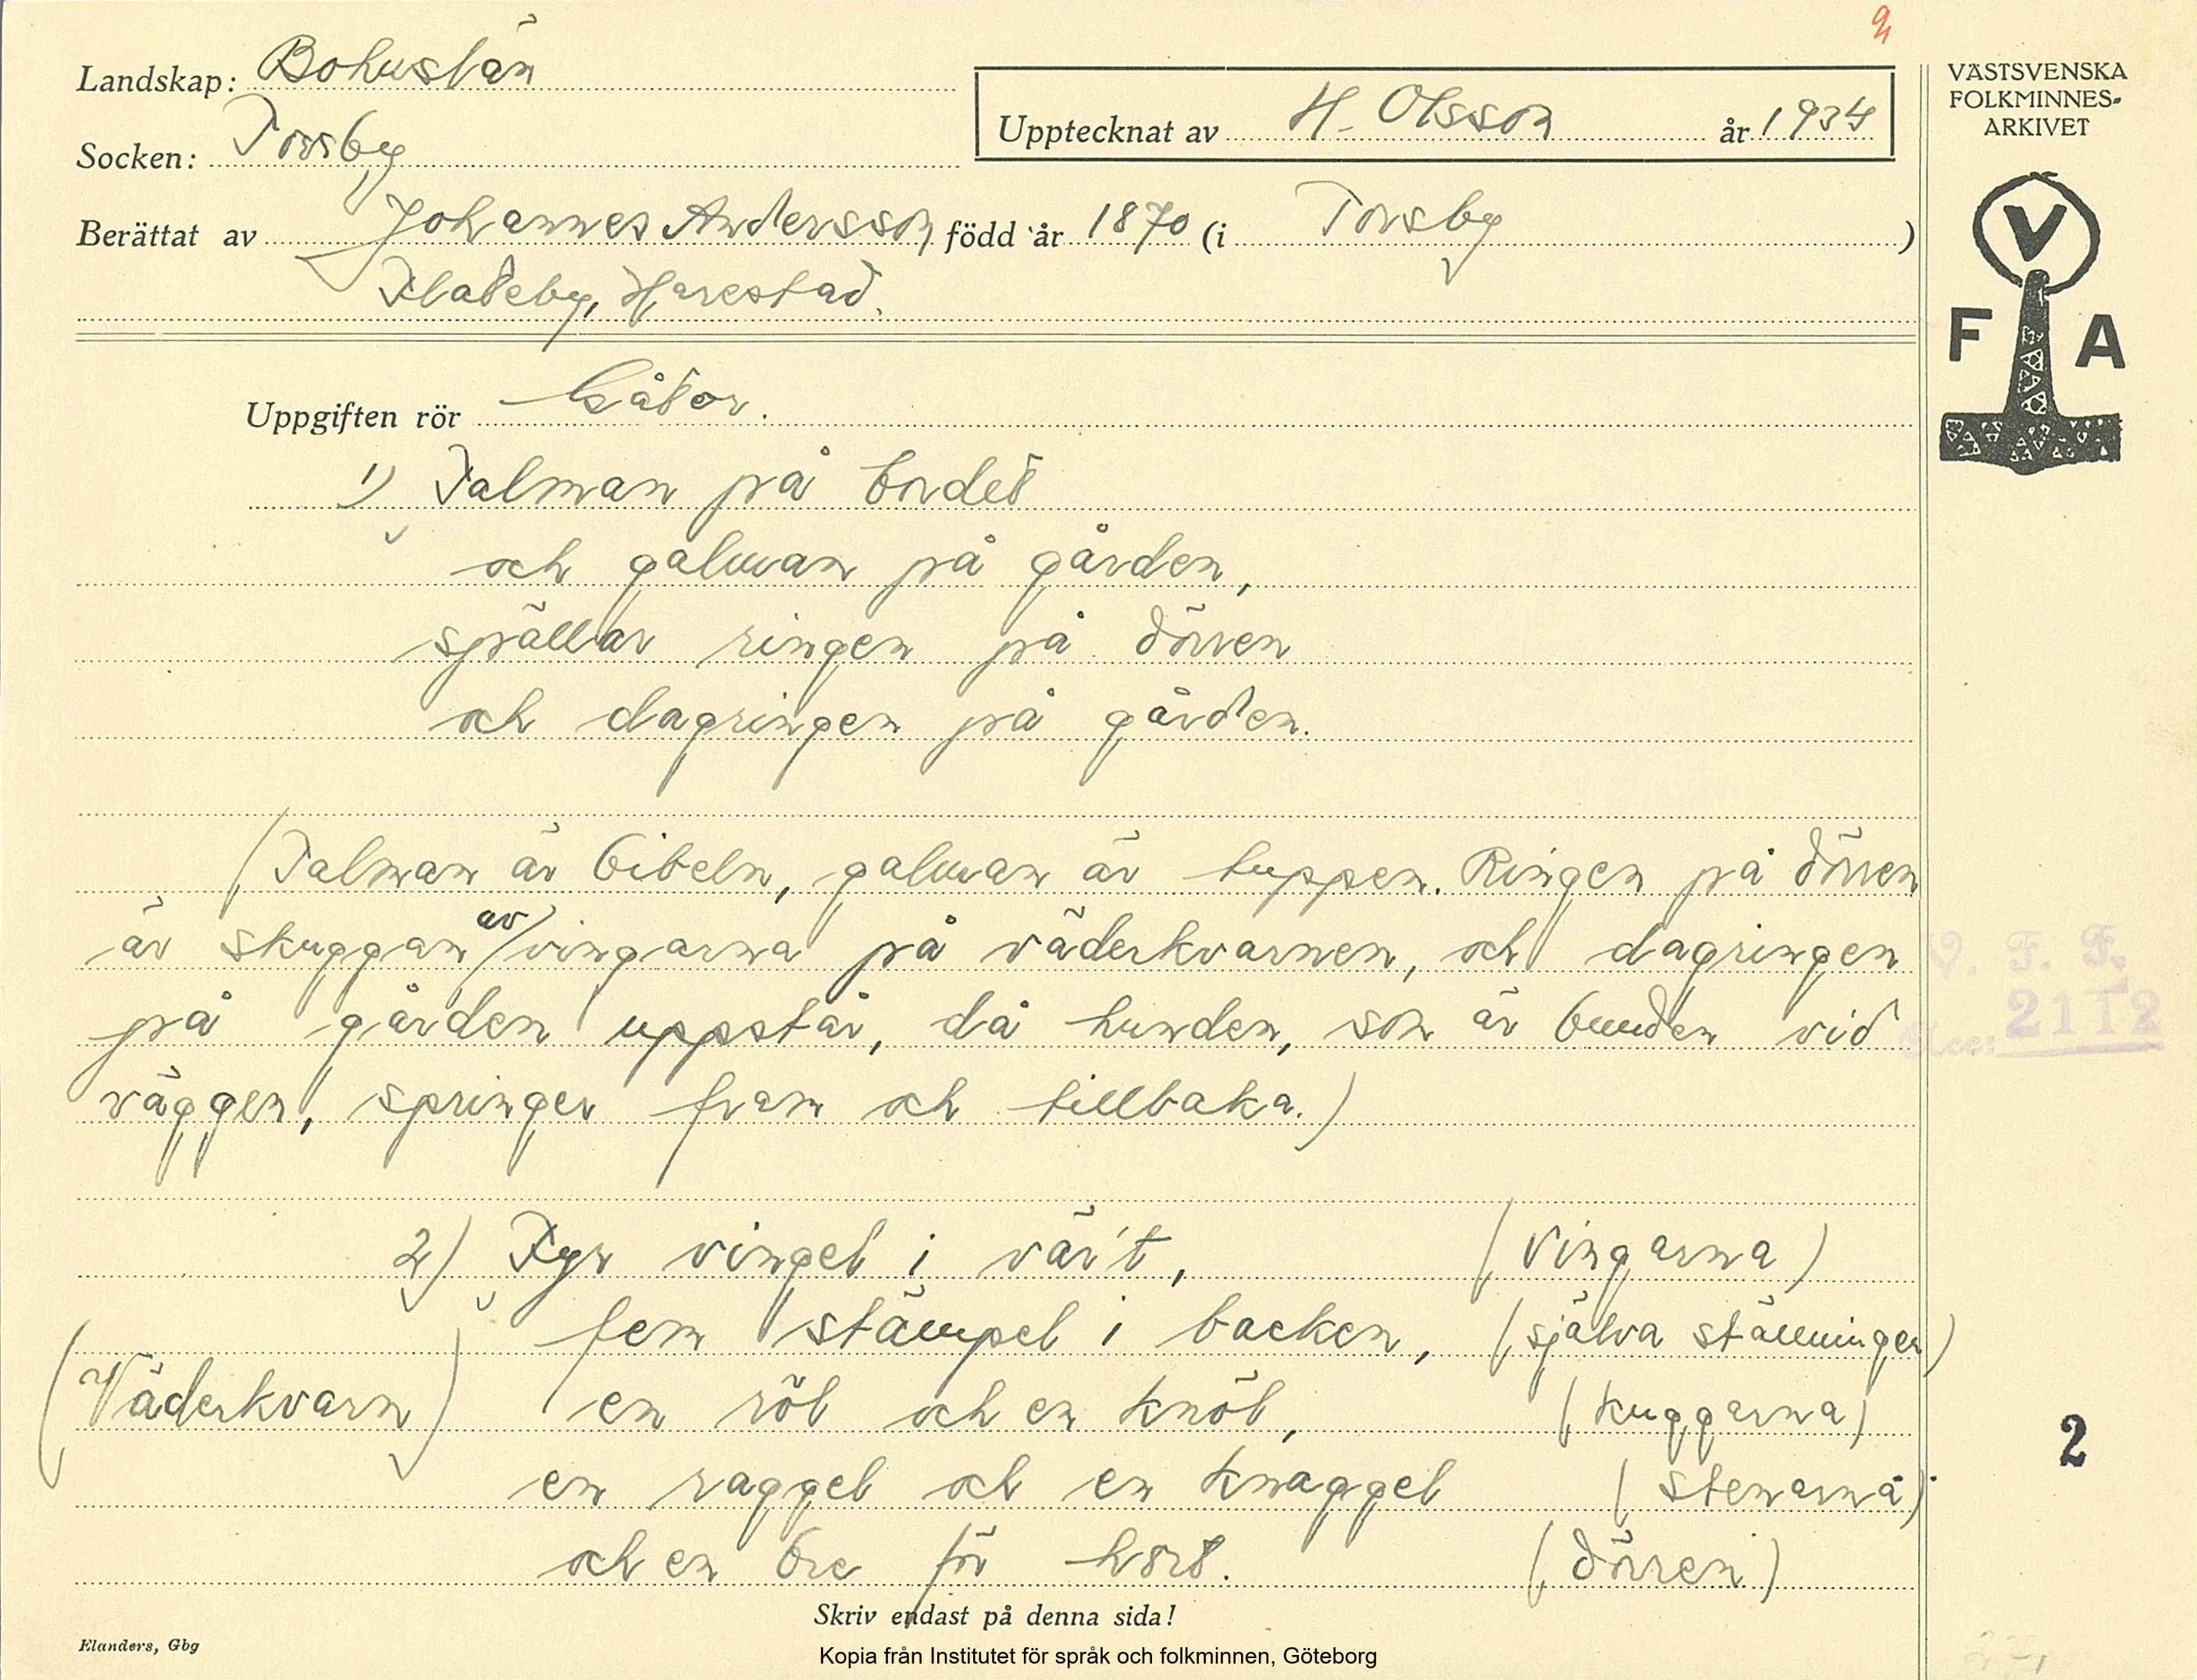 Landskap: Bohuslän
Socken: Torsby
Upptecknat av H. Olsson år 1934
Berättat av Johannes Andersson född år 1870 (i Torsby)
Flateby, Harestad.
VÄSTSVENSKA
FOLKMINNES-
ARKIVET
V
F A
Uppgiften rör Gåtor.
1) Talman på bordet
och galman på gården,
spällar ringen på dörren
och dagringen på gården.
(Talman är bibeln, galman är tuppen. Ringen på dörren
är skuggan av vingarna på väderkvarnen, och dagringen
på gården uppstår, då hunden, som är bunden vid
väggen, springer fram och tillbaka.)
V. F. F.
acc: 2112
2) Fyr vingel i vär't, (vingarna)
fem stämpel i backen, (själva ställningen)
(Väderkvarn) en röl och en knöl, (kuggarna)
en raggel och en knaggel (stenarna)
och en bre för hort. (dörren)
2
Skriv endast på denna sida!
Elanders, Gbg
Kopia från Institutet för språk och folkminnen, Göteborg